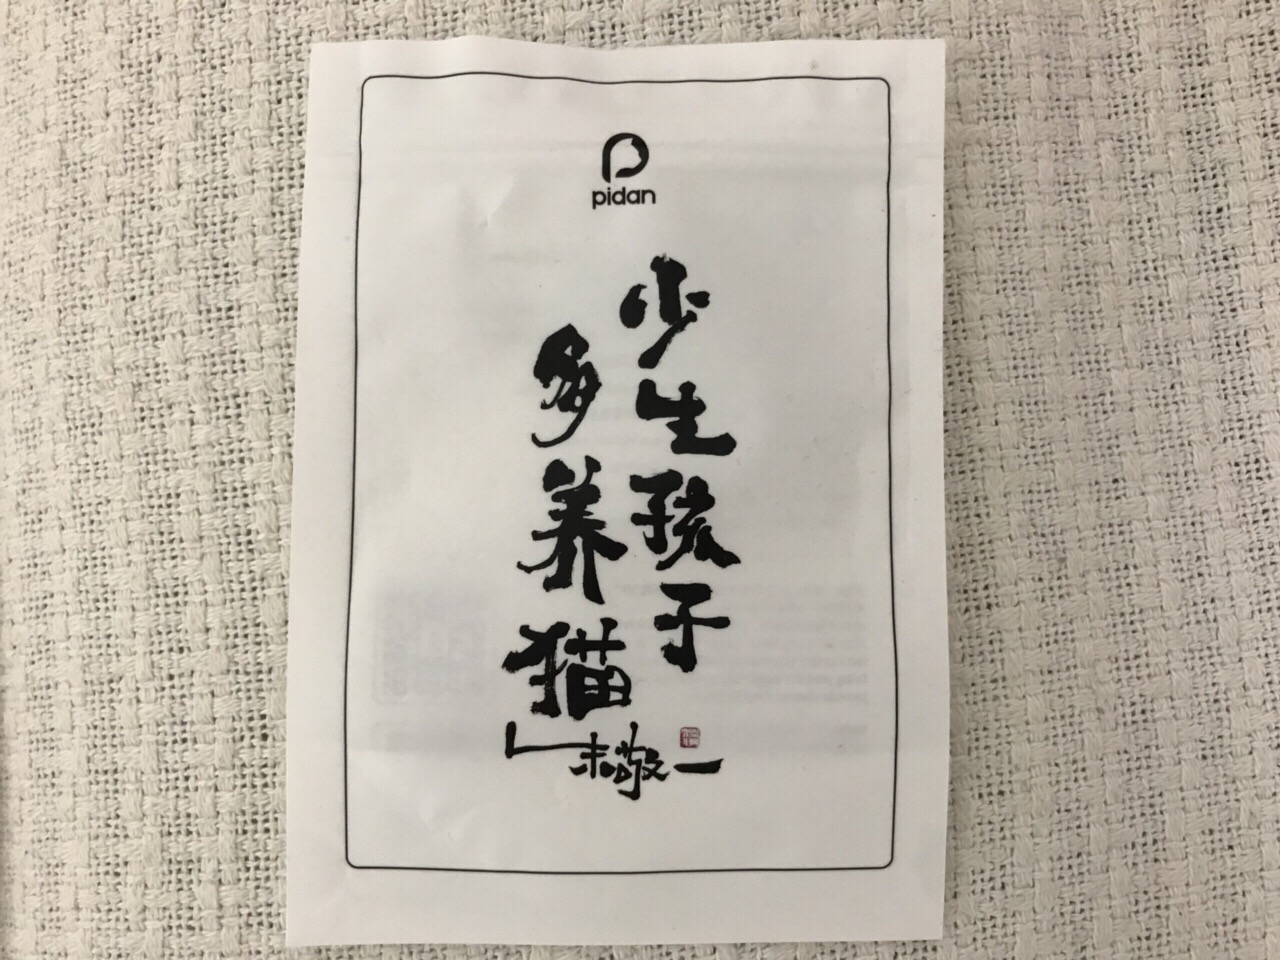 pidan
少生孩子
多养猫
朱敬一